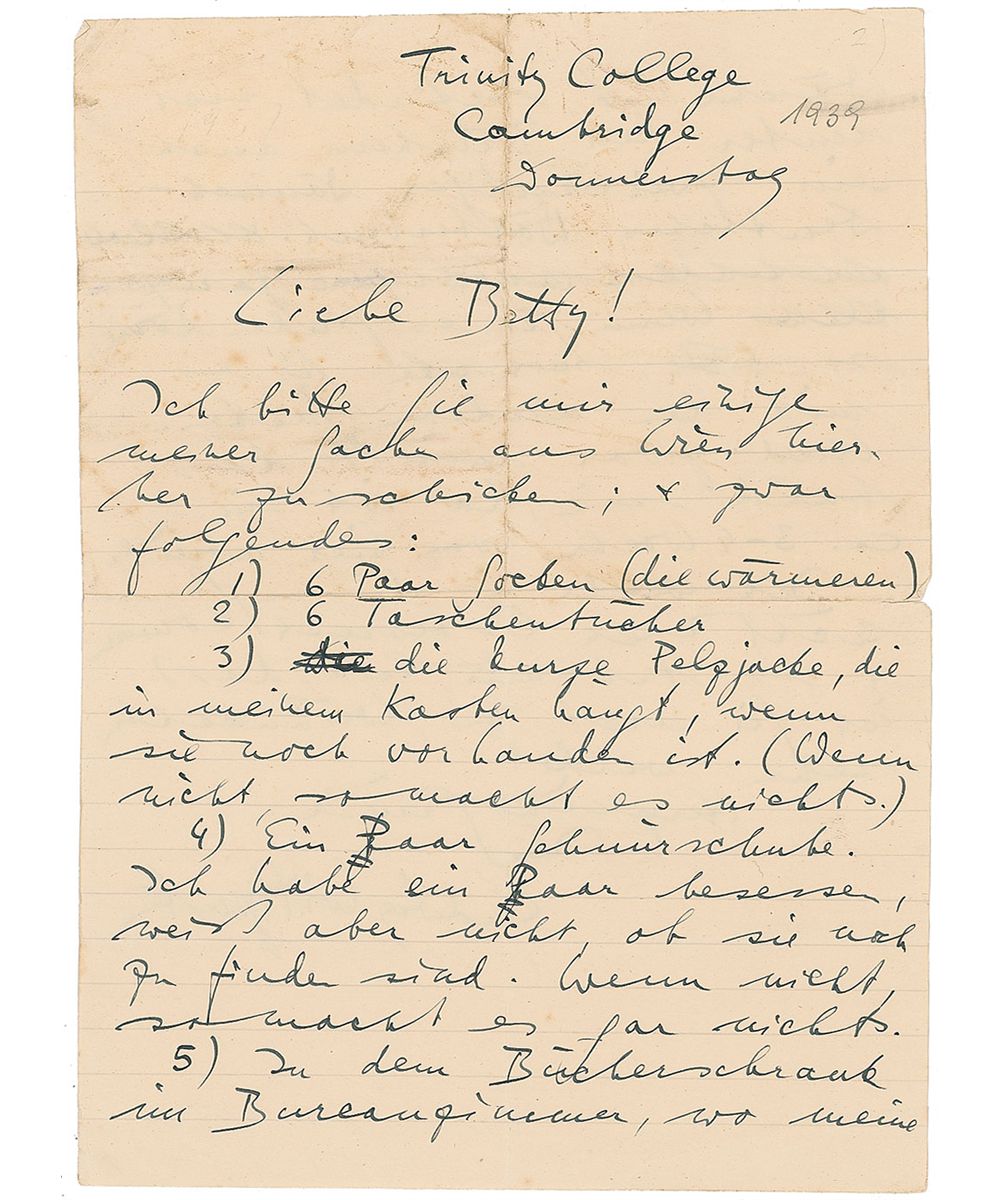 Trinity College
Cambridge
1939
Donnerstag
Liebe Betty!
Ich bitte Sie mir einige
meiner Sachen aus Wien hier-
her zu schicken; & zwar
folgendes:
1) 6 Paar Socken (die wärmeren)
2) 6 Taschentücher
3) die die kurze Pelzjacke, die
in meinem Kasten hängt, wenn
sie noch vorhanden ist. (Wenn
nicht, so macht es nichts.)
4) Ein Paar Schnürschuhe.
Ich habe ein Paar besessen,
weiß aber nicht, ob sie noch
zu finden sind. Wenn nicht,
so macht es gar nichts.
5) In dem Bücherschrank
im Bureauzimmer, wo meine